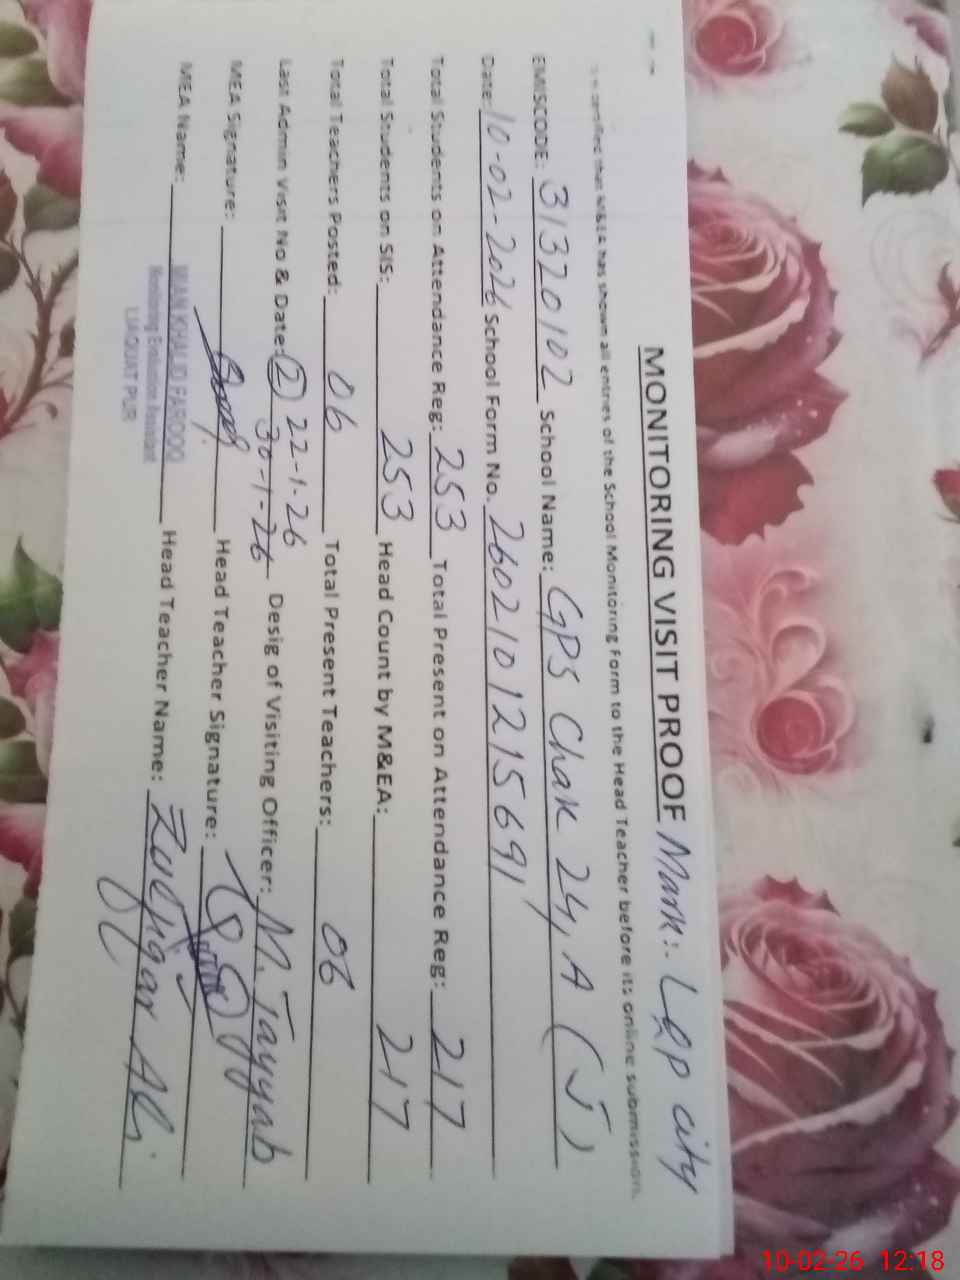 MONITORING VISIT PROOF Mark:- LQP city
certified that M&EA has shown all entries of the School Monitoring Form to the Head Teacher before its online submission.
EMISCODE: 31320102 School Name: GPS Chak 24, A (J)
Date: 10-02-2026 School Form No. 260210121215691
Total Students on Attendance Reg: 253 Total Present on Attendance Reg: 217
Total Students on SIS: 253 Head Count by M&EA: 217
Total Teachers Posted: 06 Total Present Teachers: 06
Last Admin Visit No & Date: (2) 22-1-26
30-1-26 Desig of Visiting Officer: M. Tayyab
MEA Signature: Head Teacher Signature:
MEA Name: MIAN KHALID FAROOQ Head Teacher Name: Zulfiqar Ali
Monitoring Evaluation Assistant
LIAQUAT PUR
10-02-26 12:18